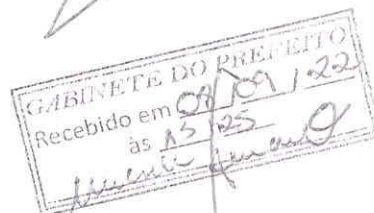 GABINETE DO PREFEITO
Recebido em 08/09/22
às 15:25